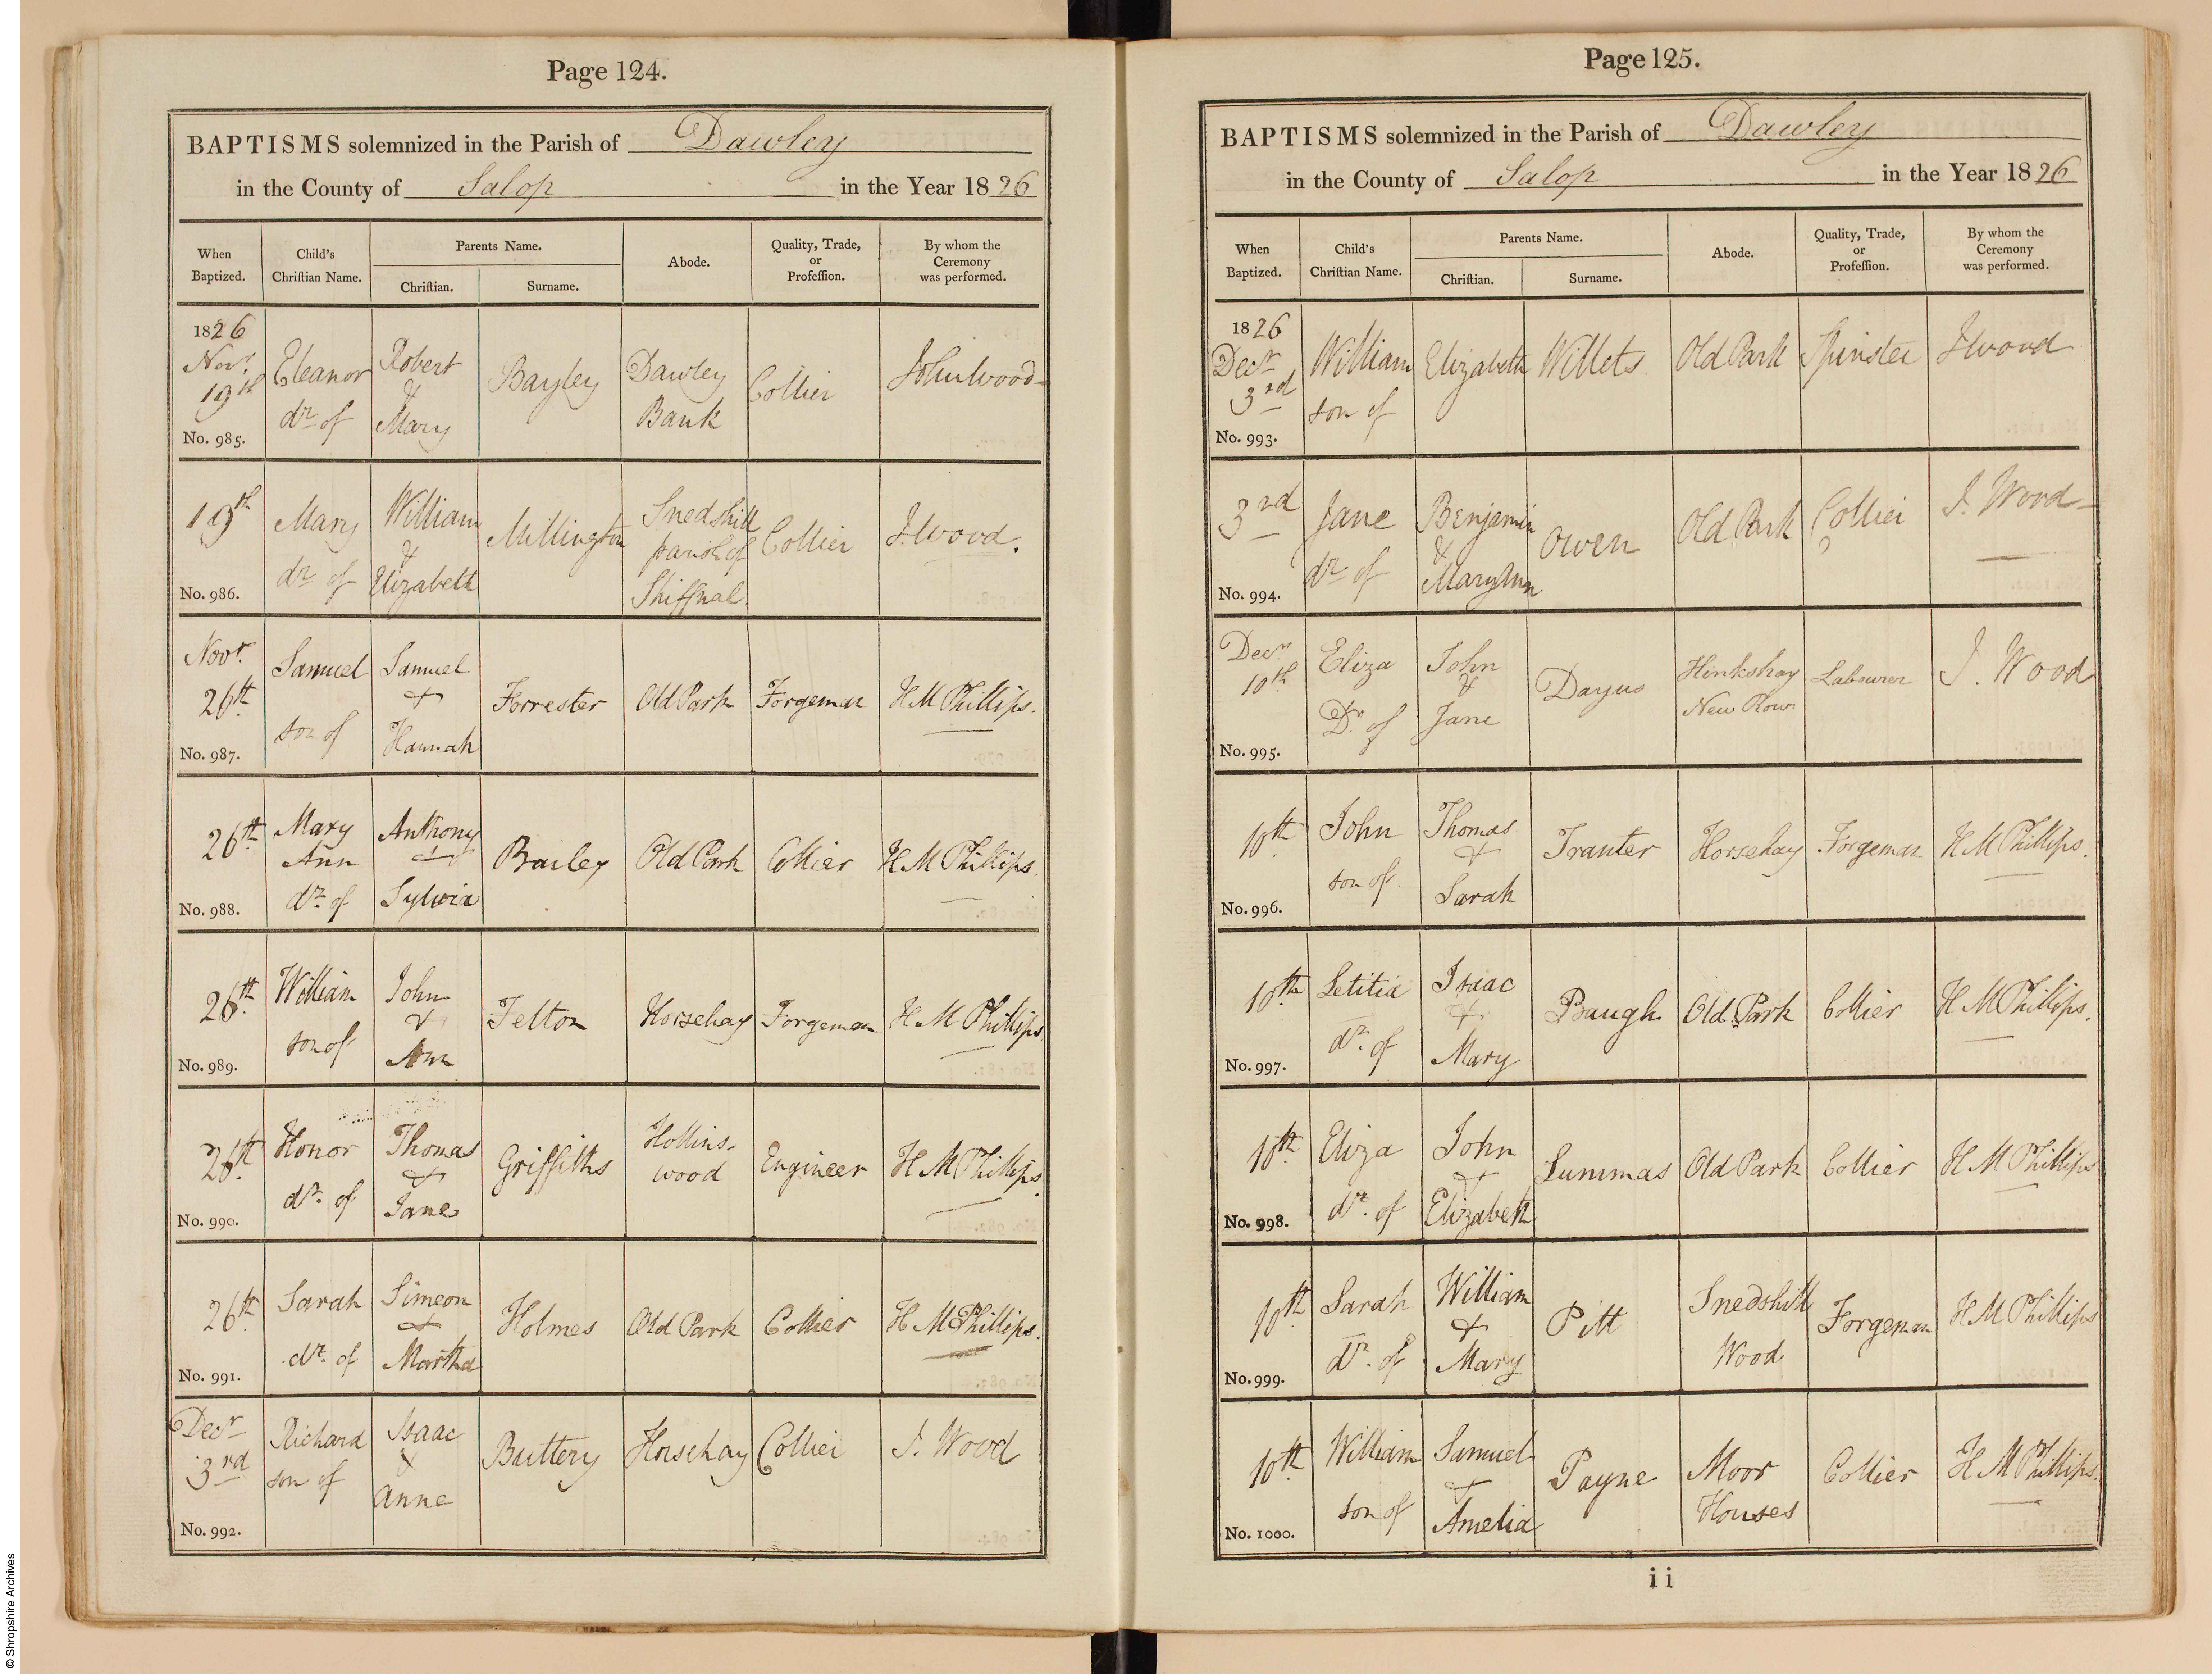 Page 124.
BAPTISMS solemnized in the Parish of Dawley
in the County of Salop in the Year 1826
When Baptized.
Child's Christian Name.
Parents Name.
Christian.
Surname.
Abode.
Quality, Trade, or Profession.
By whom the Ceremony was performed.
1826 Novr. 19th
No. 985.
Eleanor dr. of
Robert & Mary
Bayley
Dawley Bank
Collier
John Wood
19th
No. 986.
Mary dr. of
William & Elizabeth
Millington
Snedshill parish of Shiffnal.
Collier
J. Wood.
Novr. 26th
No. 987.
Samuel son of
Samuel & Hannah
Forrester
Old Park
Forgeman
H M Phillips.
26th
No. 988.
Mary Ann dr. of
Anthony & Sylvia
Bailey
Old Park
Collier
H M Phillips.
26th
No. 989.
William son of
John & Ann
Felton
Horsehay
Forgeman
H M Phillips.
26th
No. 990.
Honor dr. of
Thomas & Jane
Griffiths
Hollins-wood
Engineer
H M Phillips.
26th
No. 991.
Sarah dr. of
Simeon & Martha
Holmes
Old Park
Collier
H M Phillips.
Decr 3rd
No. 992.
Richard son of
Isaac & Anne
Buttery
Horsehay
Collier
J. Wood
Page 125.
BAPTISMS solemnized in the Parish of Dawley
in the County of Salop in the Year 1826
When Baptized.
Child's Christian Name.
Parents Name.
Christian.
Surname.
Abode.
Quality, Trade, or Profession.
By whom the Ceremony was performed.
1826 Decr 3rd
No. 993.
William son of
Elizabeth
Willets
Old Park
Spinster
J Wood
3rd
No. 994.
Jane dr. of
Benjamin & Mary Ann
Owen
Old Park
Collier
J. Wood
Decr 10th
No. 995.
Eliza Dr. of
John & Jane
Dayus
Hinkshay New Row
Labourer
J. Wood
10th
No. 996.
John son of
Thomas & Sarah
Tranter
Horsehay
Forgeman
H M Phillips.
10th
No. 997.
Letitia dr. of
Isaac & Mary
Baugh
Old Park
Collier
H M Phillips.
10th
No. 998.
Eliza dr. of
John & Elizabeth
Lummas
Old Park
Collier
H M Phillips
10th
No. 999.
Sarah dr. of
William & Mary
Pitt
Snedshill Wood
Forgeman
H M Phillips
10th
No. 1000.
William son of
Samuel & Amelia
Payne
Moor Houses
Collier
H M Phillips.
i i
© Shropshire Archives